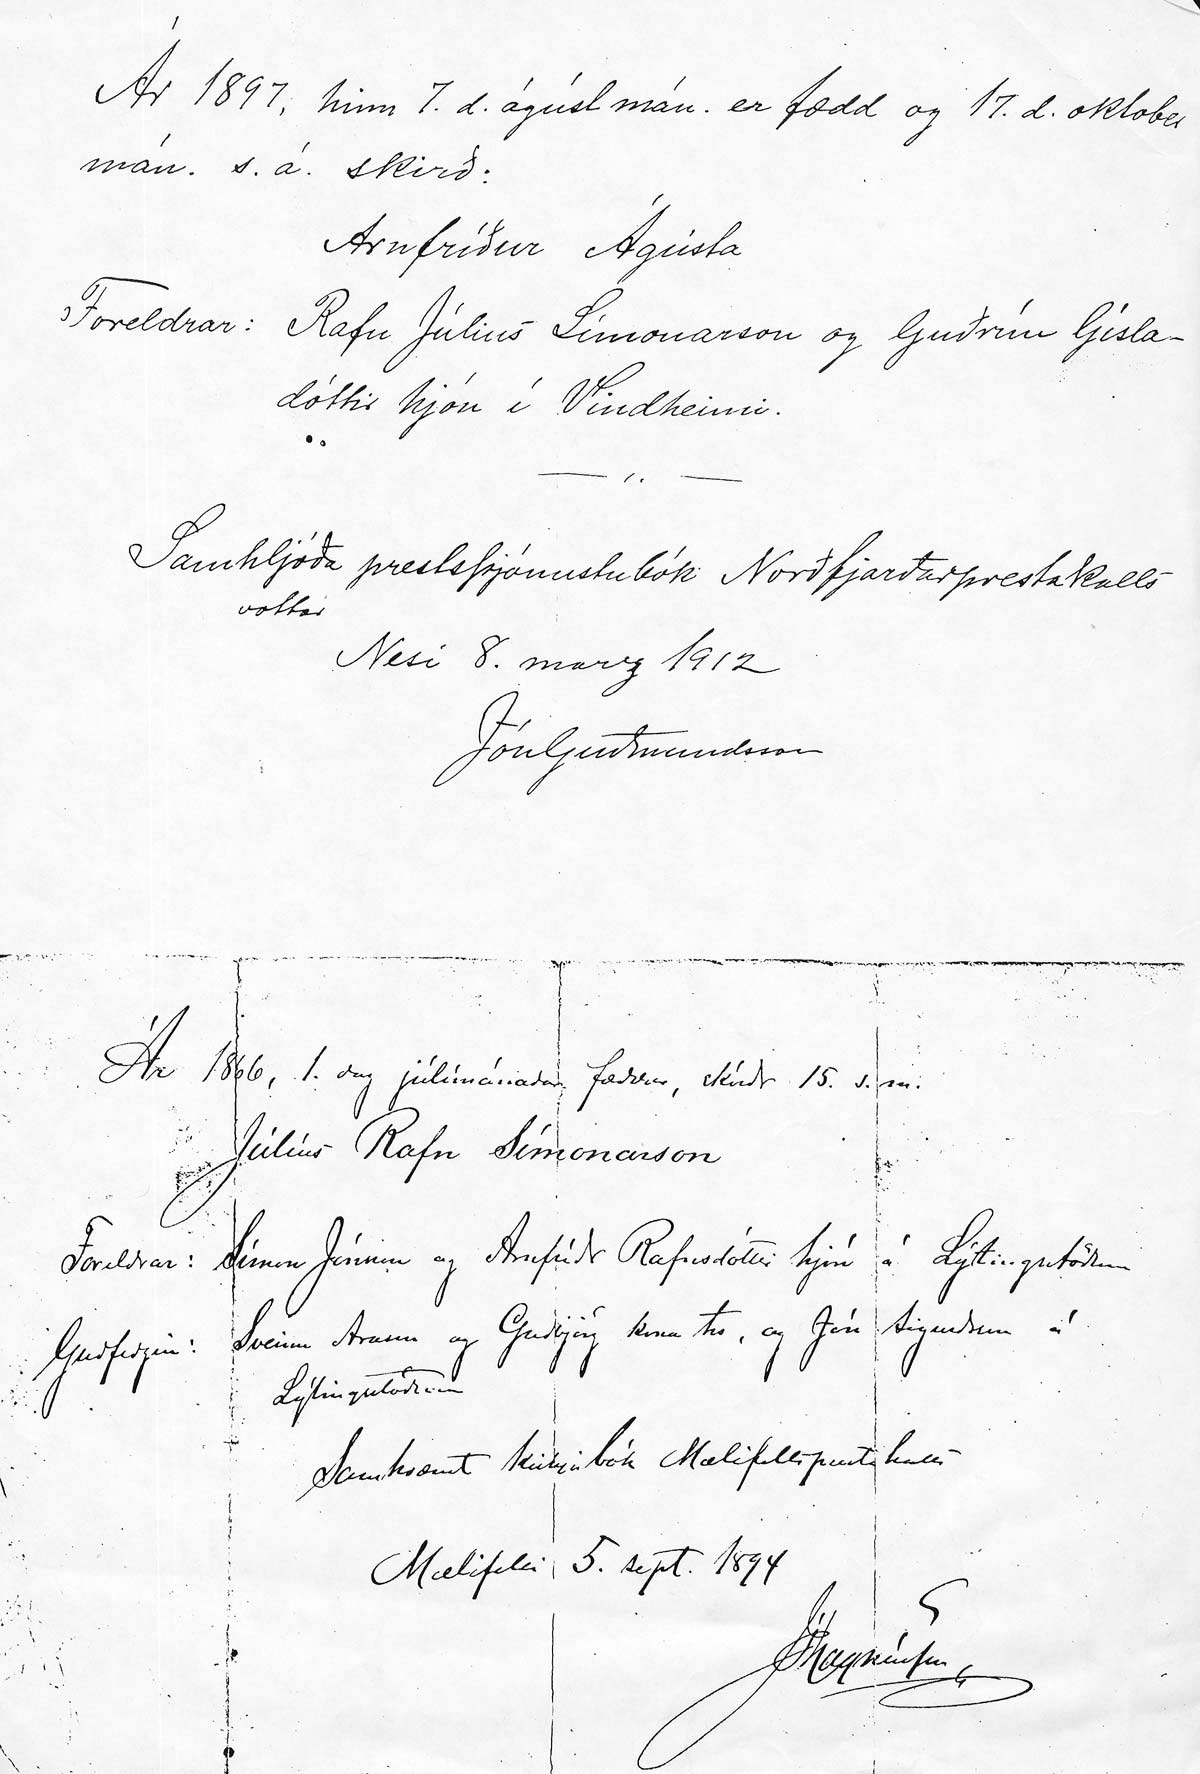 Ár 1897, hinn 7. d. ágúst mán. er fædd og 17. d. oktober
mán. s. á. skirð:
Arnfríður Ágústa
Foreldrar: Rafn Júlíus Símonarson og Guðrún Gísla-
dóttir hjón í Vindheimi.
Samhljóða prestsþjónustubók Norðfjarðarprestakalls
vottar
Nesi 8. marz 1912
Jón Guðmundsson
Ár 1866, 1. dag júlímánaðar fæddur, skírðr 15. s. m.
Júlíus Rafn Símonarson
Foreldrar: Símon Jónsson og Arnfríðr Rafnsdóttir hjón á Lýtingsstöðum
Guðfeðgin: Sveinn Arason og Guðbjörg kona hs, og Jón Sigurðsson á
Lýtingsstöðum
Samkvæmt kirkjubók Mælifellsprestakalls
Mælifelli 5. sept. 1894